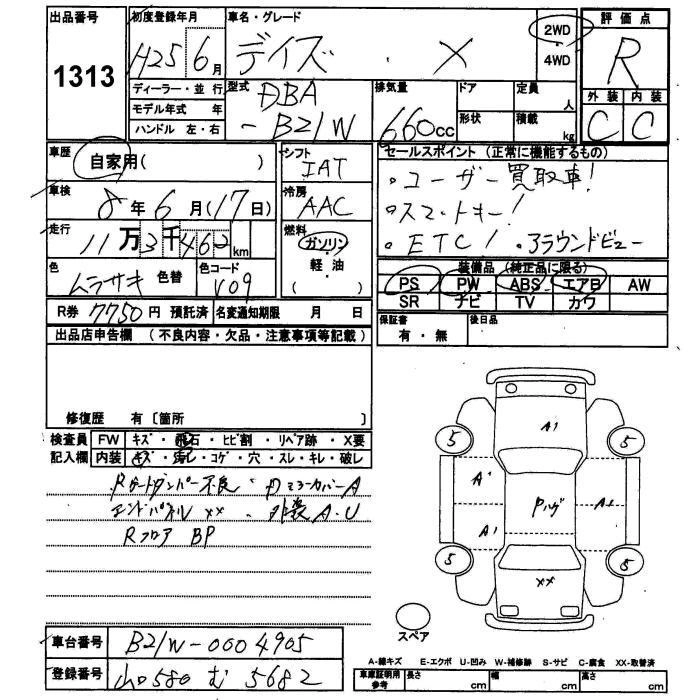 出品番号
1313
初度登録年月
H25 6月
車名・グレード
デイズ ・ X
2WD
・
4WD
評価点
R
外装 内装
C C
ディーラー・並行
モデル年式 年
ハンドル 左・右
型式
DBA
-B21W
排気量
660cc
ドア
形状
定員
人
積載
kg
車歴
自家用( )
車検
8年6月(17日)
走行
11万3千462km
色
ムラサキ 色替
色コード
V09
シフト
IAT
冷房
AAC
燃料
ガソリン
軽・油
( )
セールスポイント (正常に機能するもの)
・ユーザー買取車!
・スマートキー!
・ETC! ・アラウンドビュー
装備品 (純正品に限る)
PS PW ABS エアB AW
SR ナビ TV カワ
R券 7750円 預託済 名変通知期限 月 日
保証書
有・無
後日品
出品店申告欄 (不良内容・欠品・注意事項等記載)
修復歴 有〔箇所 〕
検査員 FW キズ・飛石・ヒビ割・リペア跡・X要
記入欄 内装 キズ・汚レ・コゲ・穴・スレ・キレ・破レ
Rゲートダンパー不良・
ミラーカバーA
エンドパネル XX ・外装A・U
Rフロア BP
A1
5 5
A1
Pハゲ
A1
A1
5 5
XX
スペア
車台番号 B21W-0004905
登録番号 山口580 む 5682
A-線キズ E-エクボ U-凹み W-補修跡 S-サビ C-腐食 XX-取替済
車庫証明用
参考
長さ cm 幅 cm 高さ cm